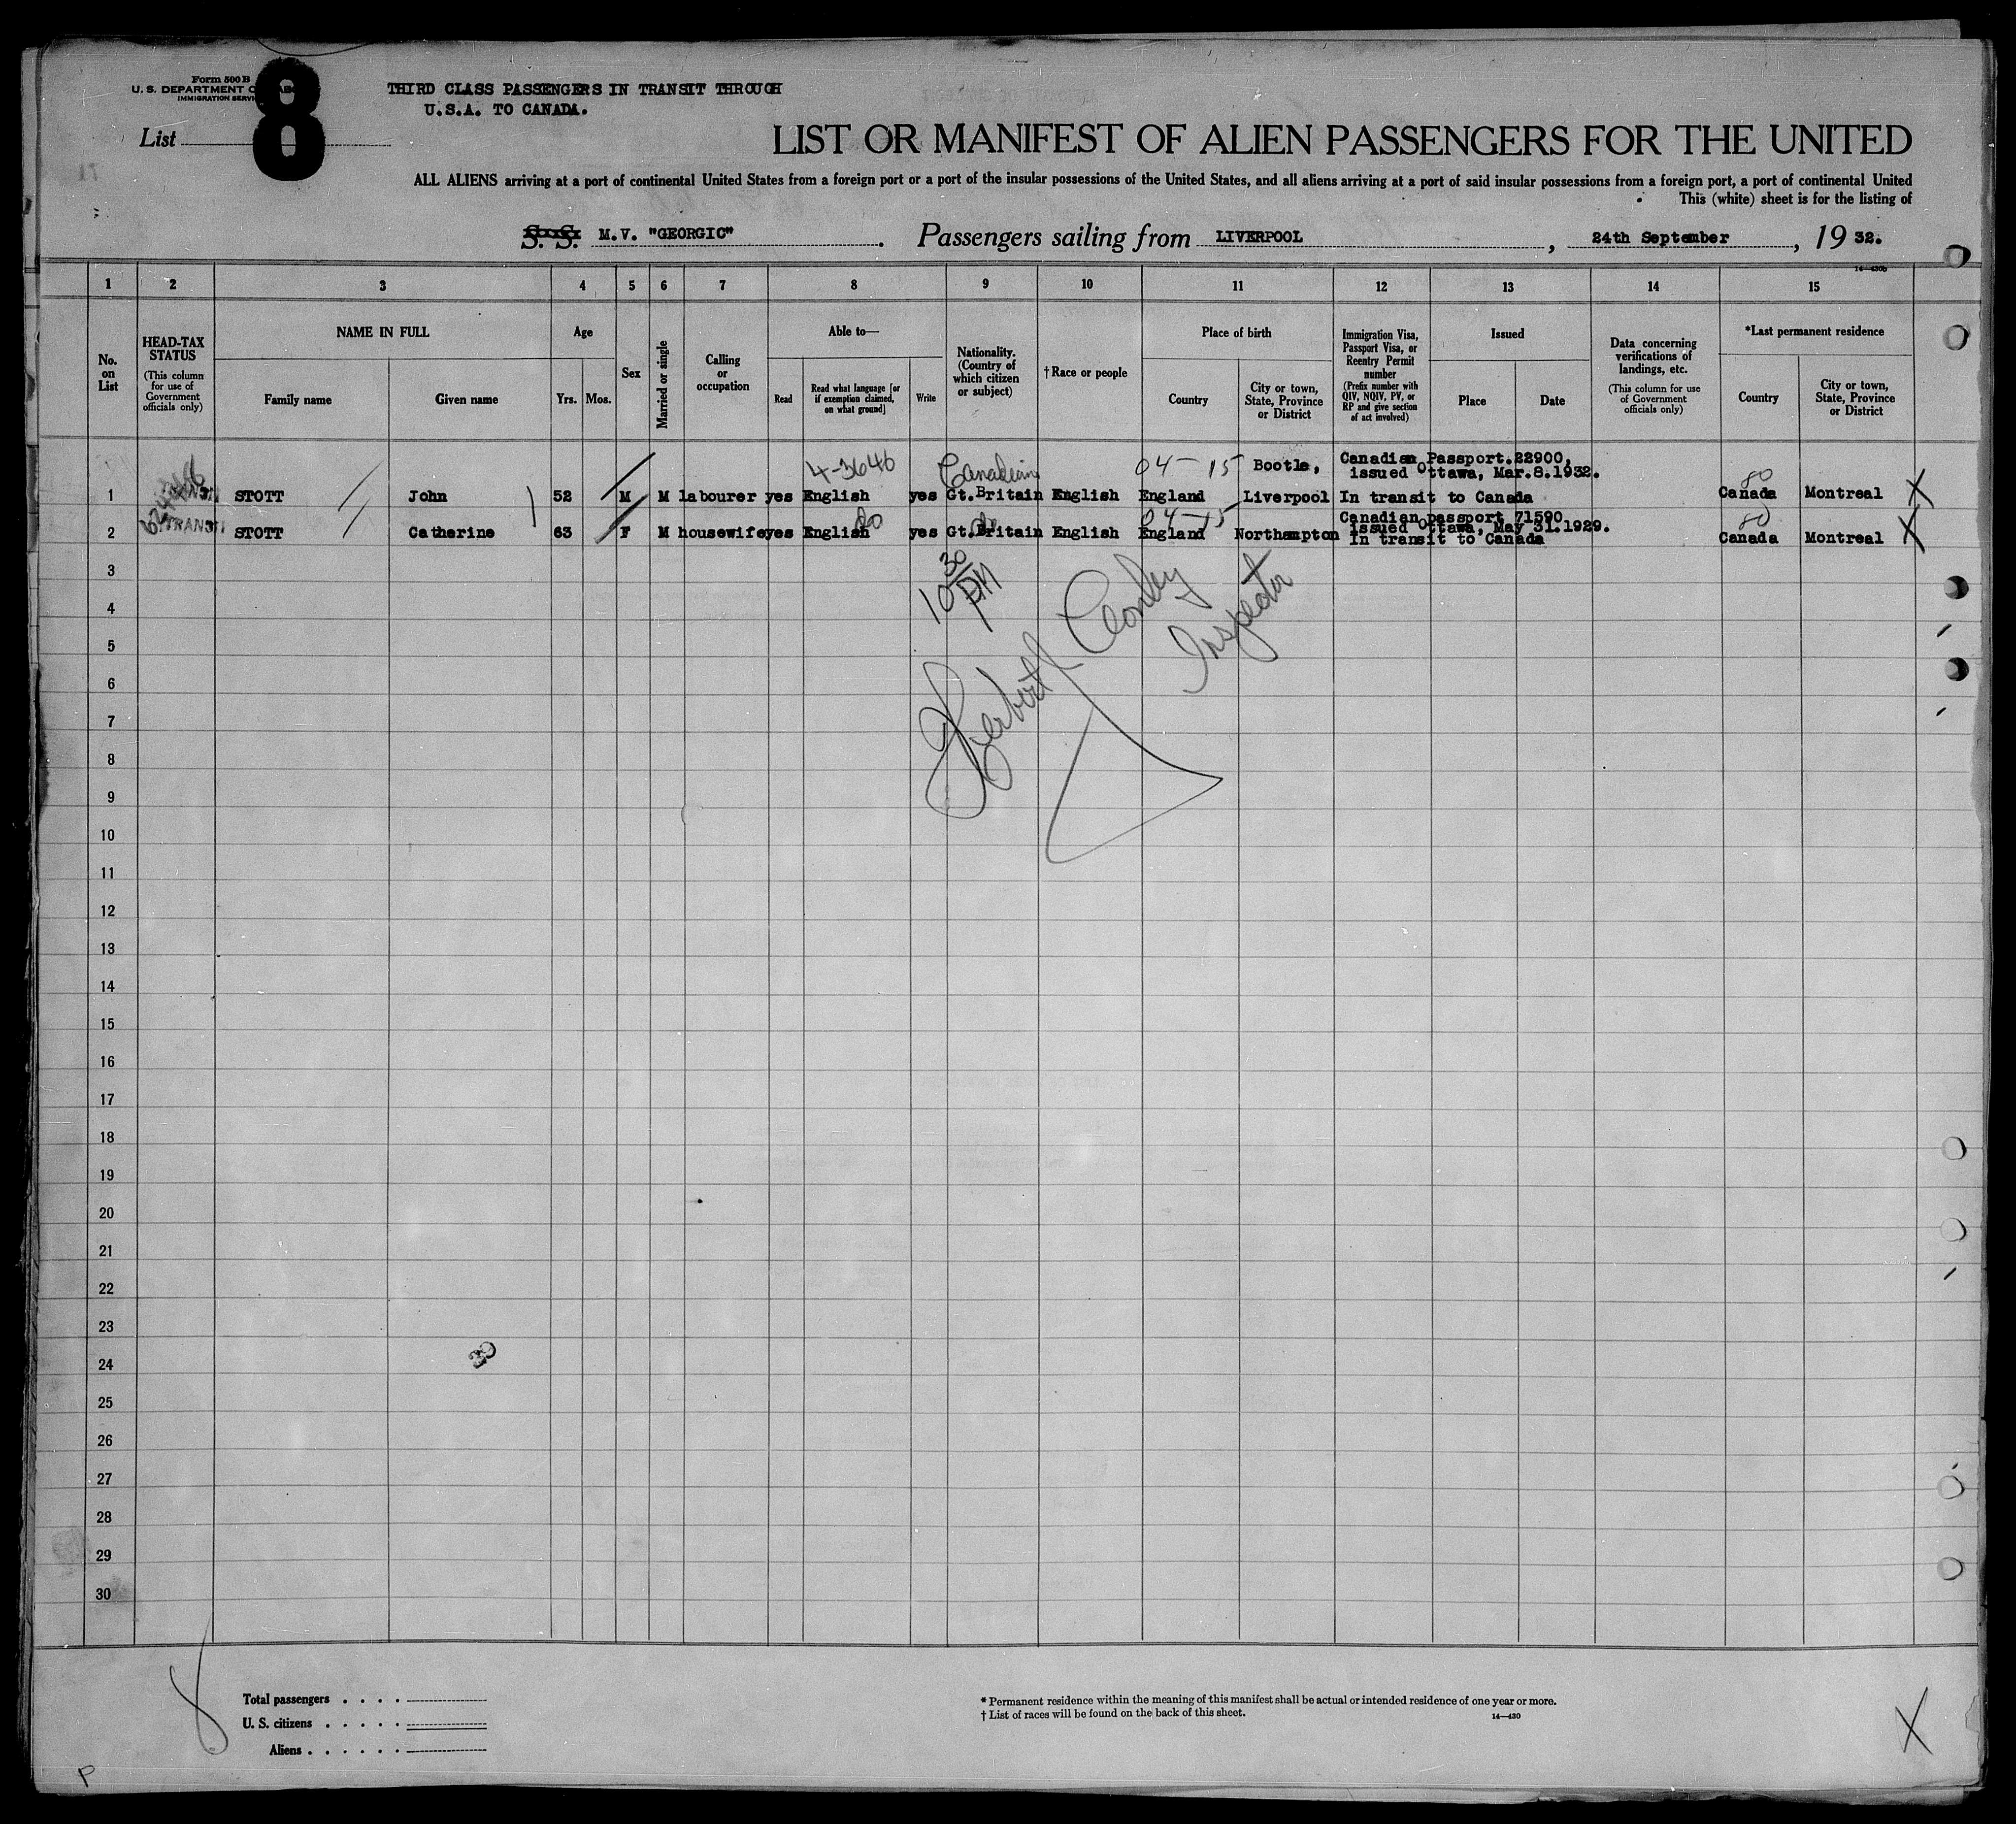 Form 500 B
U. S. DEPARTMENT O
IMMIGRATION SERVI
List 8
THIRD CLASS PASSENGERS IN TRANSIT THROUGH
U.S.A. TO CANADA.
LIST OR MANIFEST OF ALIEN PASSENGERS FOR THE UNITED
ALL ALIENS arriving at a port of continental United States from a foreign port or a port of the insular possessions of the United States, and all aliens arriving at a port of said insular possessions from a foreign port, a port of continental United
This (white) sheet is for the listing of
S. S. M.V. "GEORGIC". Passengers sailing from LIVERPOOL, 24th September, 19 32.
14—430b
1 2 3 4 5 6 7 8 9 10 11 12 13 14 15
No. on List
HEAD-TAX STATUS
(This column for use of Government officials only)
NAME IN FULL
Family name
Given name
Age
Yrs. Mos.
Sex
Married or single
Calling or occupation
Able to—
Read
Read what language [or if exemption claimed, on what ground]
Write
Nationality. (Country of which citizen or subject)
† Race or people
Place of birth
Country
City or town, State, Province or District
Immigration Visa, Passport Visa, or Reentry Permit number
(Prefix number with QIV, NQIV, PV, or RP and give section of act involved)
Issued
Place
Date
Data concerning verifications of landings, etc.
(This column for use of Government officials only)
*Last permanent residence
Country
City or town, State, Province or District
4-3646 Canadian 04-15 Bootle, Canadian Passport.22900,
issued Ottawa, Mar.8.1932. 80
1 STOTT John 52 M M labourer yes English yes Gt.Britain English England Liverpool In transit to Canada Canada Montreal X
do do 04-15 Canadian passport 71590
TRANSIT issued Ottawa, May 31.1929. 80
2 STOTT Catherine 63 F M housewife yes English yes Gt.Britain English England Northampton In transit to Canada Canada Montreal X
3
10 30 PM
4
Inspector
5
6
Herbert
7
8
9
10
11
12
13
14
15
16
17
18
19
20
21
22
23
24
25
26
27
28
29
30
Total passengers . . . .
U. S. citizens . . . . .
Aliens . . . . . .
* Permanent residence within the meaning of this manifest shall be actual or intended residence of one year or more.
† List of races will be found on the back of this sheet.
14—430
X
P